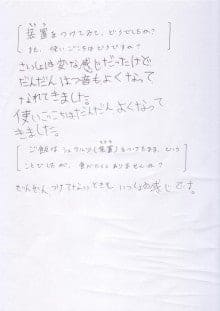 装置をつけてみて、どうでしたか？
また、使いごこちはどうですか？
さいしょは変な感じだったけど
だんだんはつ音もよくなって
なれてきました。
使いごこちはだんだんよくなって
きました。
ご飯は
装置
をつけたまま、という
ことでしたが、食べにくくありませんか？
だんだんつけてないときと、いっしょの感じです。